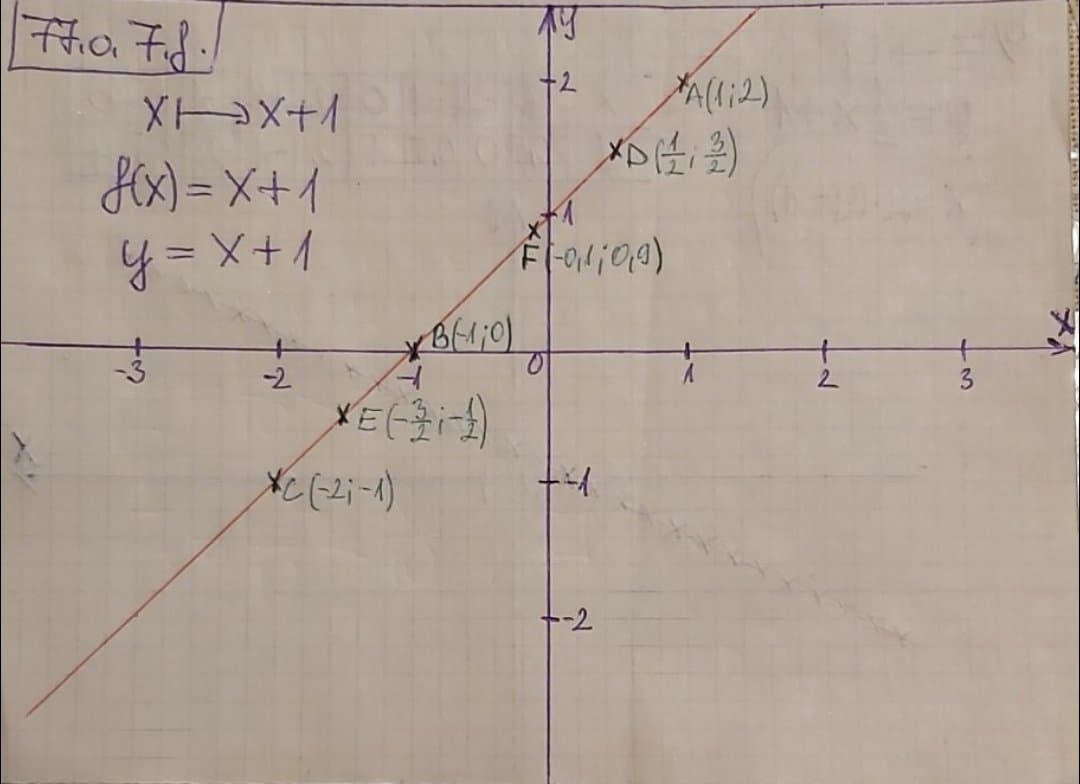 77.o. 7.f.
x ↦ x+1
f(x) = x+1
y = x+1
y
2
A(1;2)
D(1/2; 3/2)
1
F(-0,1;0,9)
B(-1;0)
x
-3
-2
-1
0
1
2
3
E(-3/2;-1/2)
C(-2;-1)
-1
-2